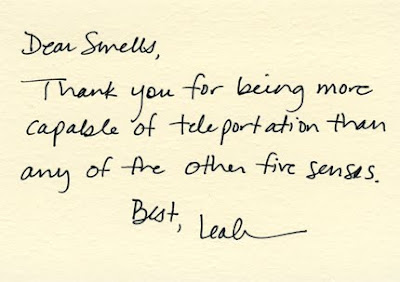 Dear Smells,
Thank you for being more
capable of teleportation than
any of the other five senses.
Best, Leah